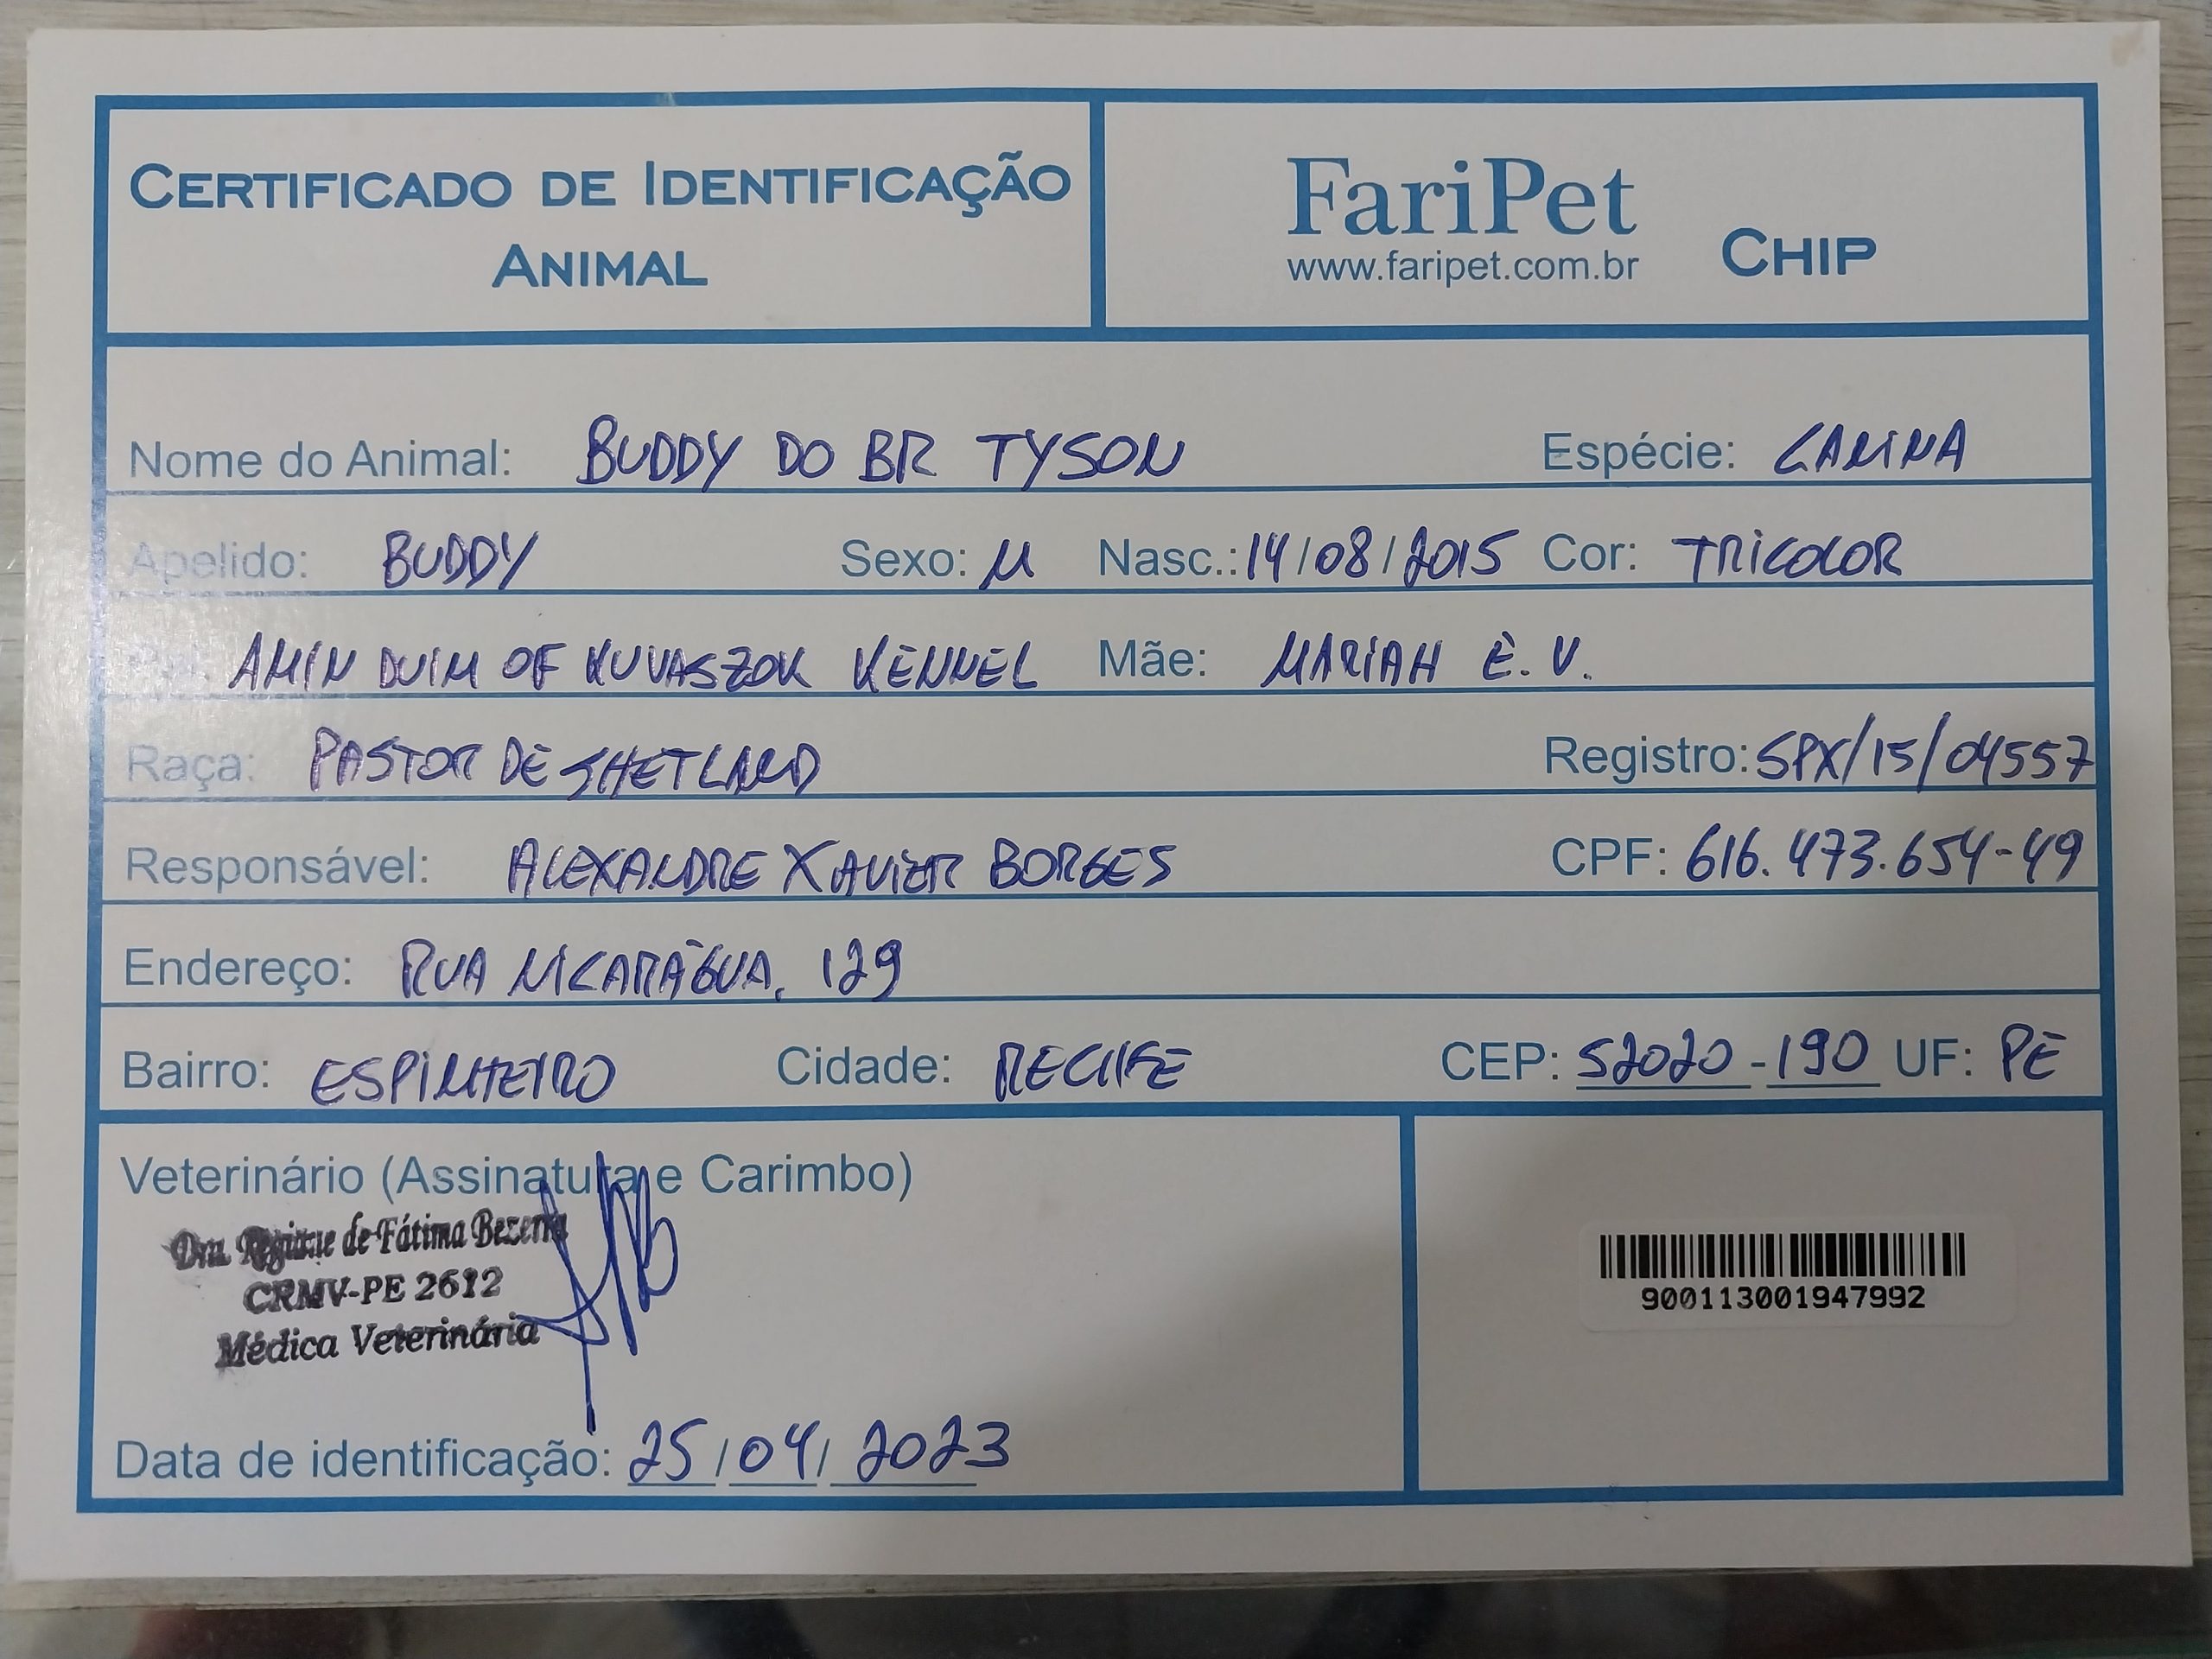 CERTIFICADO DE IDENTIFICAÇÃO
ANIMAL
FariPet
www.faripet.com.br
CHIP
Nome do Animal: BUDDY DO BR TYSON Espécie: CANINA
Apelido: BUDDY Sexo: M Nasc.: 14/08/2015 Cor: TRICOLOR
Pai: AMIN DUIM OF KUVASZOK KENNEL Mãe: MARIAH E. V.
Raça: PASTOR DE SHETLAND Registro: SPX/15/04557
Responsável: ALEXANDRE XAVIER BORGES CPF: 616.473.654-49
Endereço: RUA NICARÁGUA, 129
Bairro: ESPINHEIRO Cidade: RECIFE CEP: 52020-190 UF: PE
Veterinário (Assinatura e Carimbo)
Dra. de Fátima Bezerra
CRMV-PE 2612
Médica Veterinária
900113001947992
Data de identificação: 25/04/2023